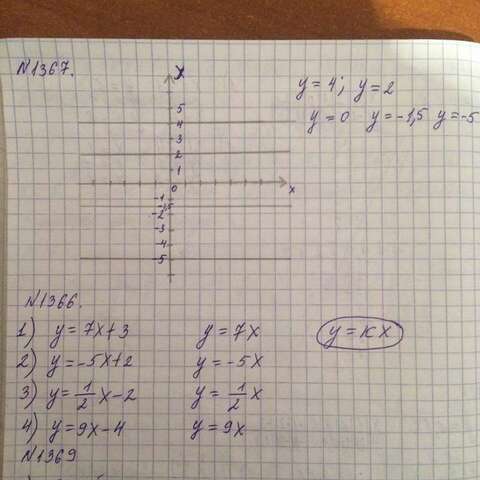 №1367.
y=4; y=2
y=0 y=-1,5 y=-5
y
5
4
3
2
1
0 x
-1
-1,5
-2
-3
-4
-5
№1366.
1) y=7x+3 y=7x y=kx
2) y=-5x+2 y=-5x
3) y=1/2x-2 y=1/2x
4) y=9x-4 y=9x
№1369